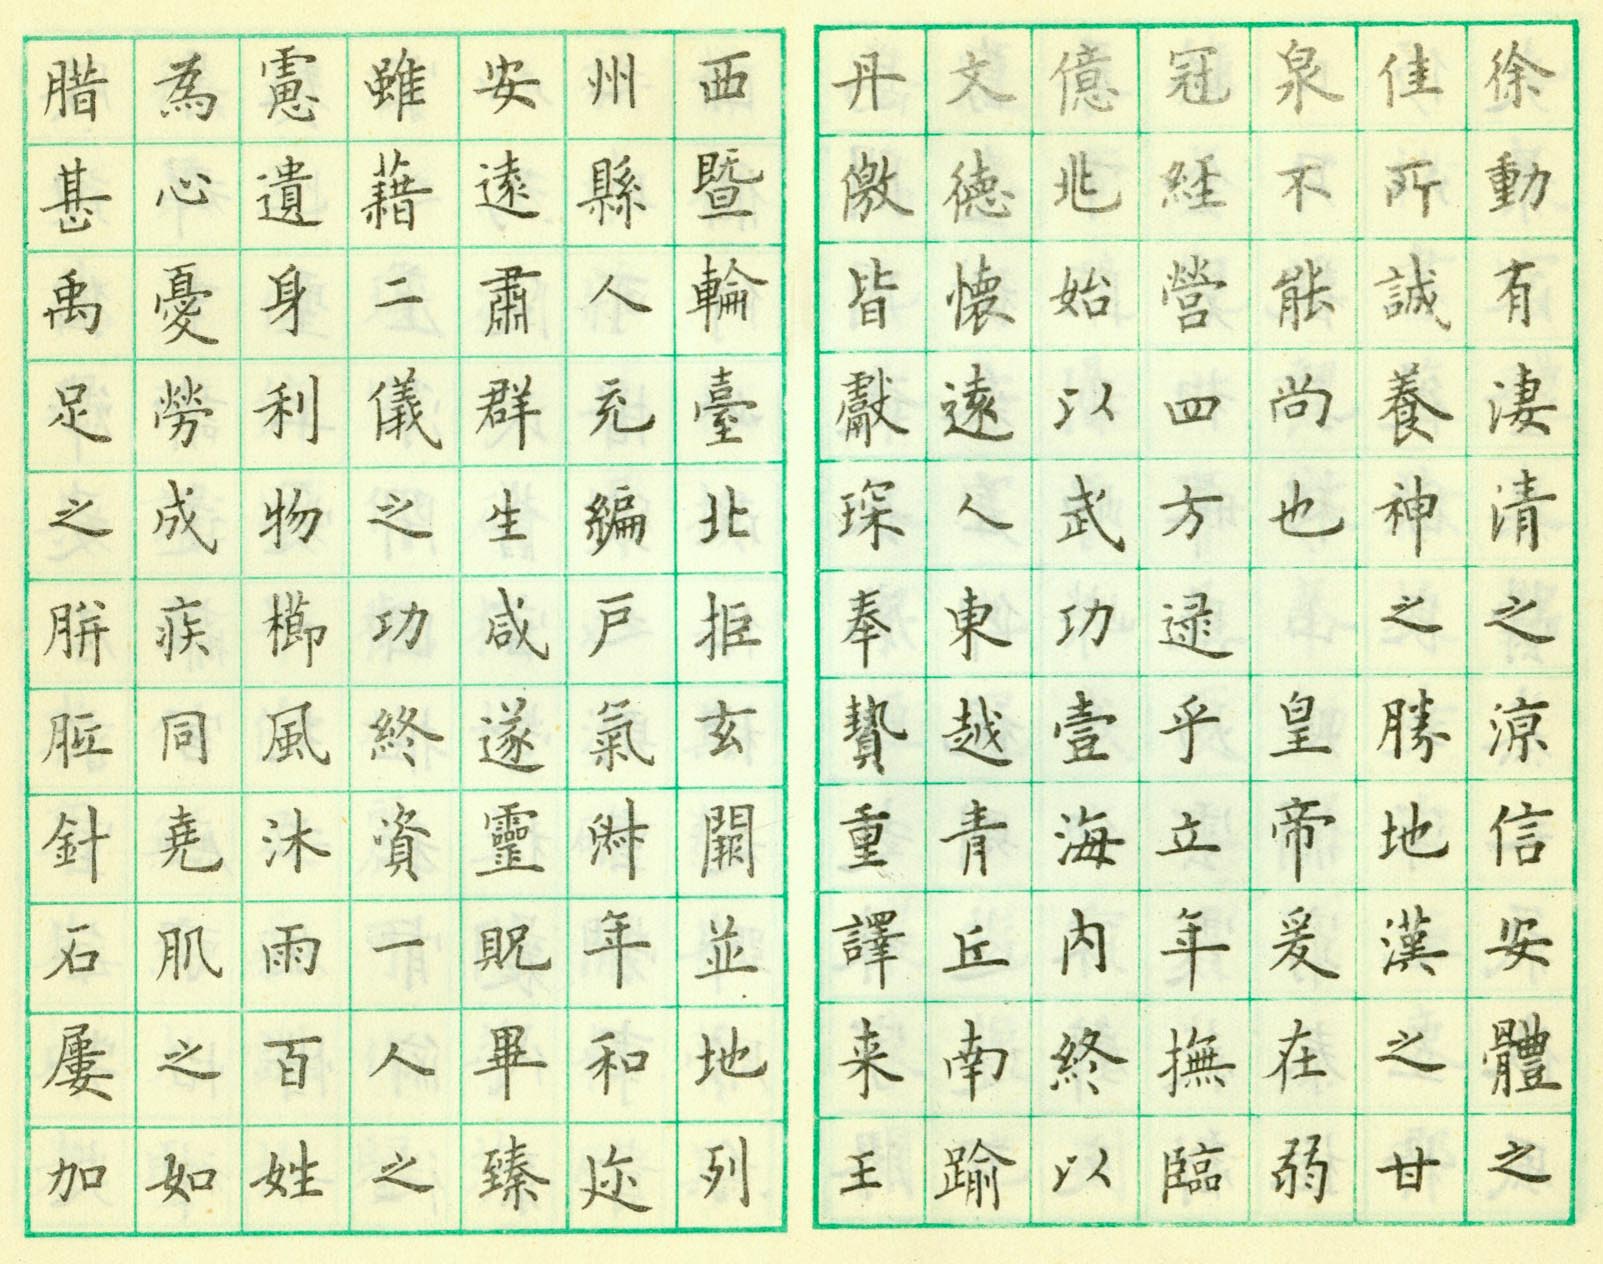 徐動有淒清之涼信安體之
佳所誠養神之勝地漢之甘
泉不能尚也皇帝爰在弱
冠經營四方逯乎立年撫臨
億兆始以武功壹海內終以
文德懷遠人東越青丘南踰
丹徼皆獻琛奉贄重譯来王
西暨輪臺北拒玄闕並地列
州縣人充編戶氣淑年和迩
安遠肅群生咸遂靈貺畢臻
雖藉二儀之功終資一人之
慮遺身利物櫛風沐雨百姓
為心憂勞成疾同堯肌之如
腊甚禹足之胼胝針石屢加